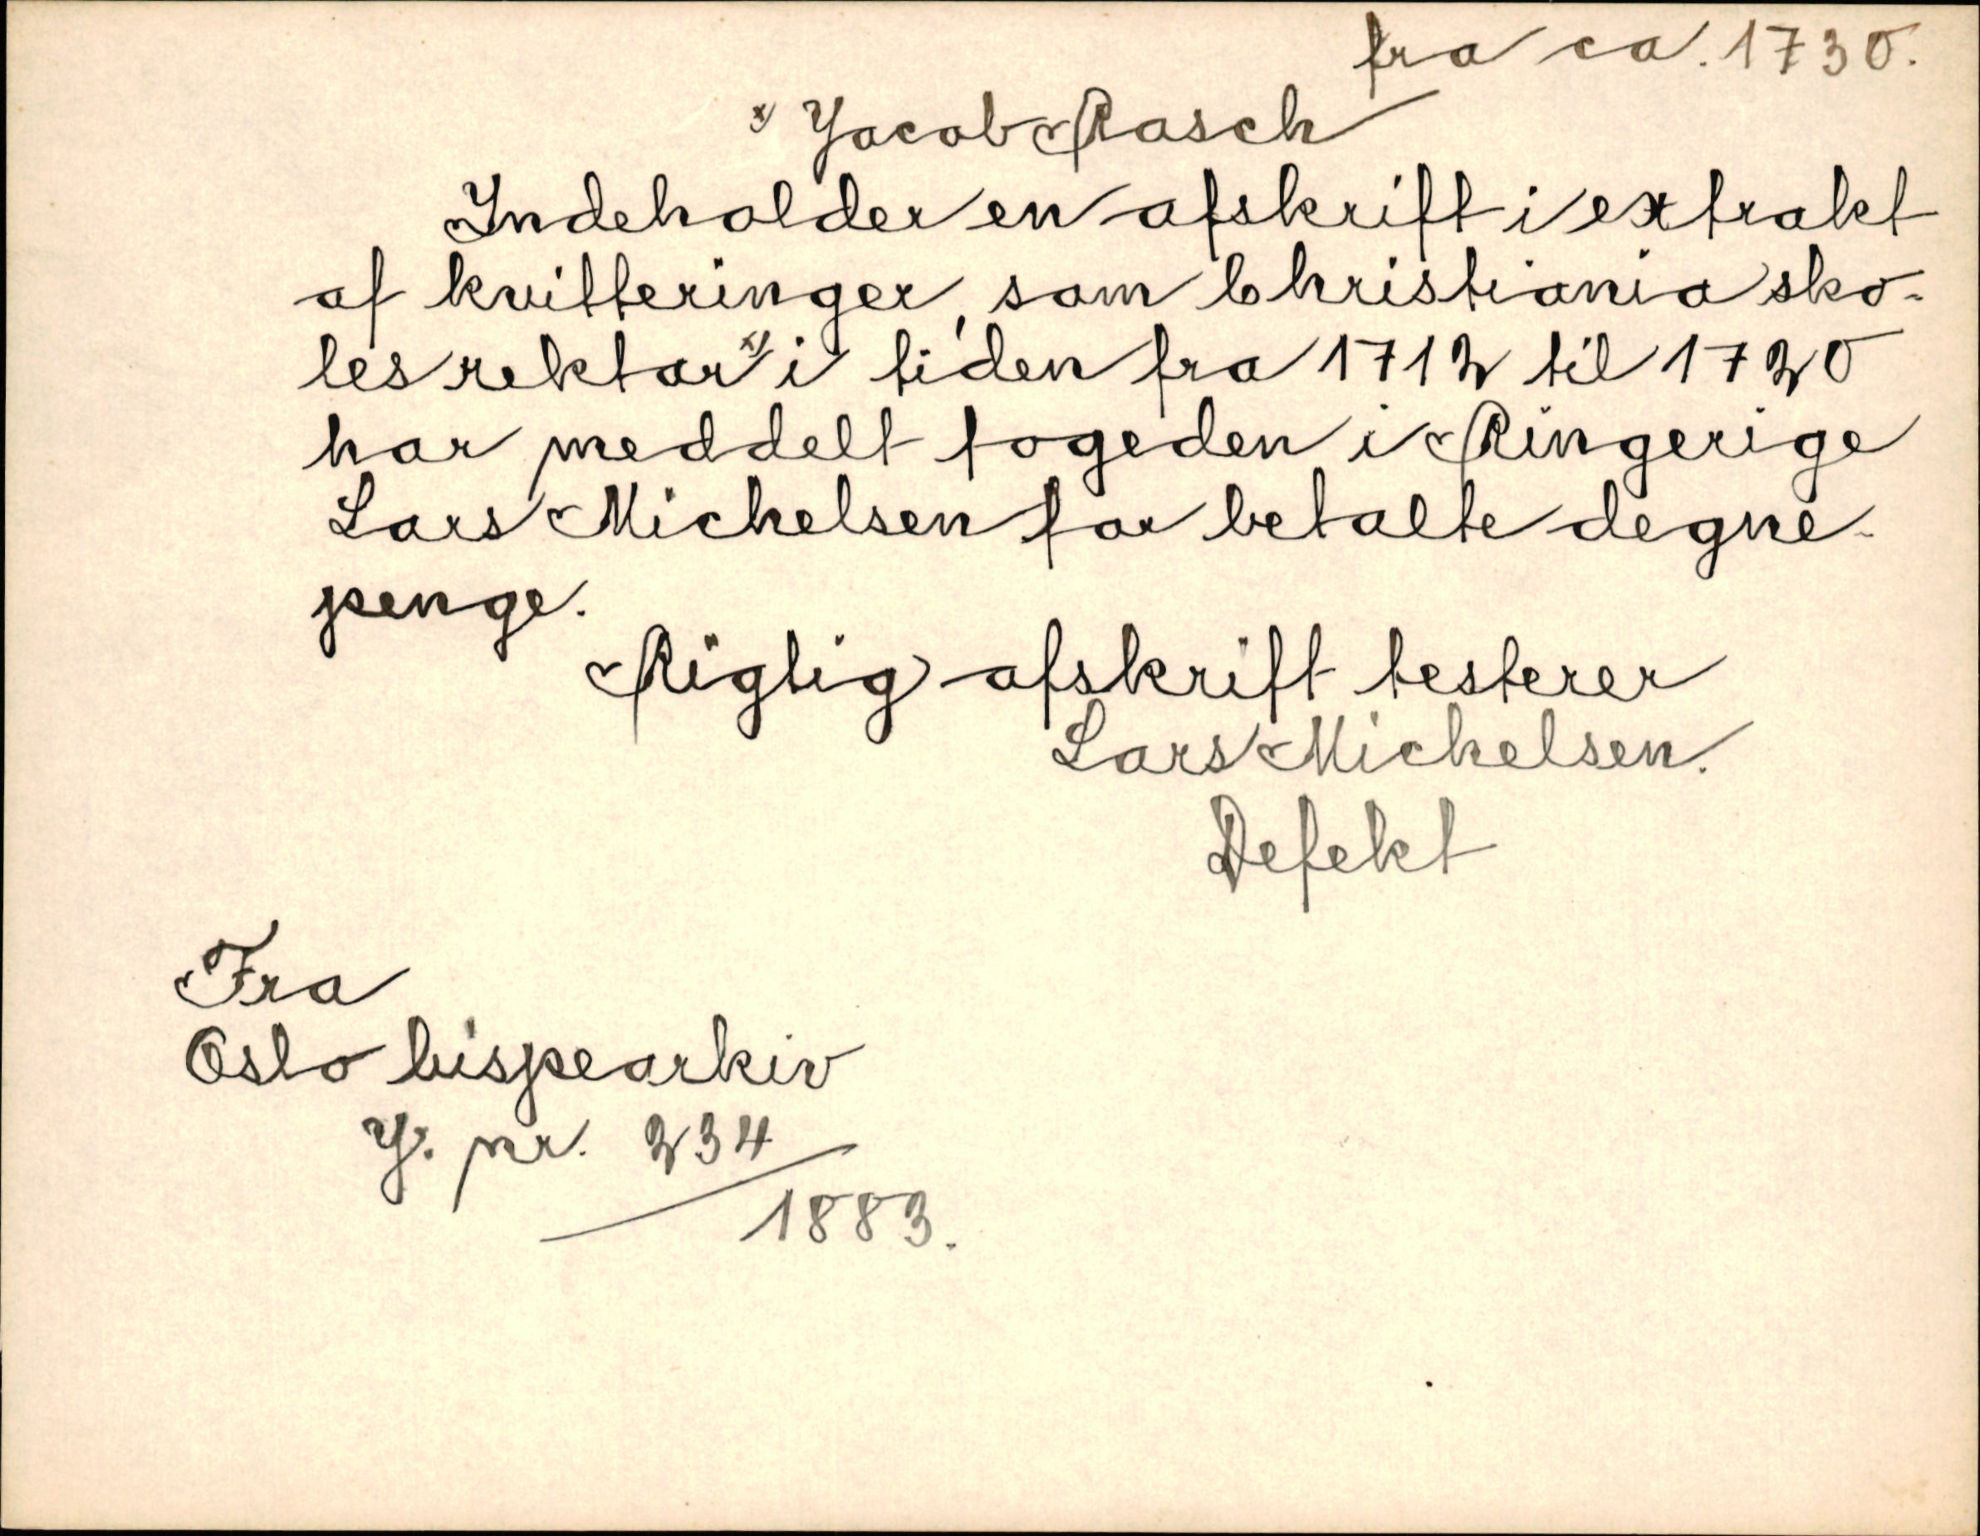 fra ca. 1730.
x Jacob Rasch
Indeholder en afskrift i extrakt
af kvitteringer, som Christiania sko-
les rektor x) i tiden fra 1712 til 1720
har meddelt fogeden i Ringerige
Lars Michelsen for betalte degne-
penge.
Rigtig afskrift testerer
Lars Michelsen.
Defekt
Fra
Oslo bispearkiv
J. nr. 234
1883.